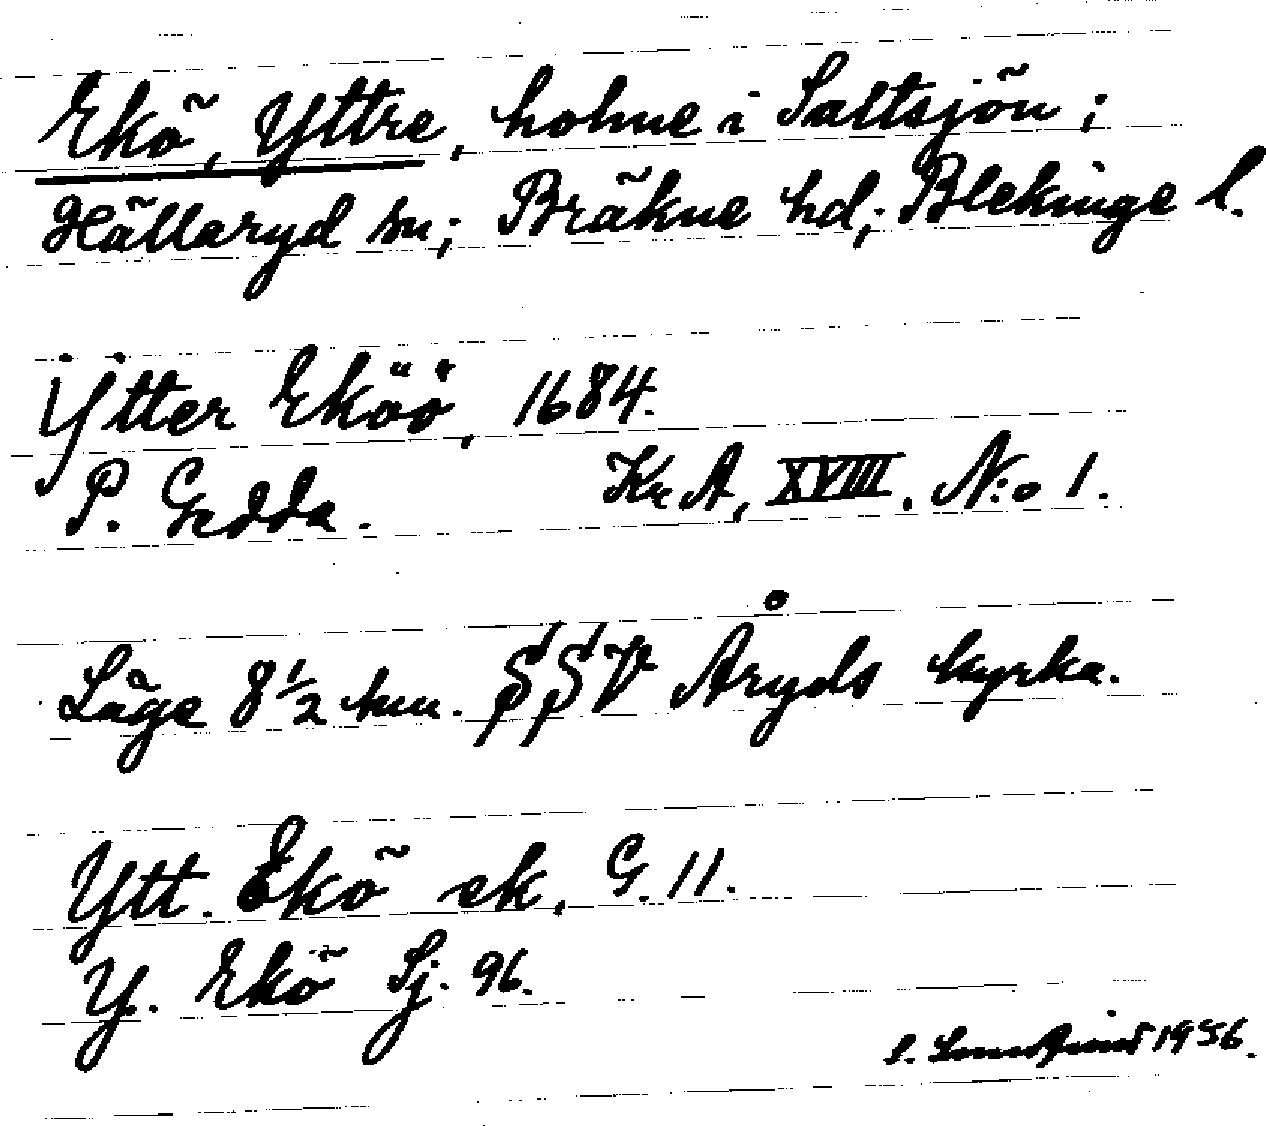 Ekö, Yttre, holme i Saltsjön;
Hällaryd sn; Bräkne hd; Blekinge l.
Ytter Eköö, 1684.
P. Gedda. Kr A, XVIII. N:o 1.
Läge 8 1/2 km. SSV Åryds kyrka.
Ytt. Ekö ek. G. 11.
Y. Ekö Sj. 96.
1956.